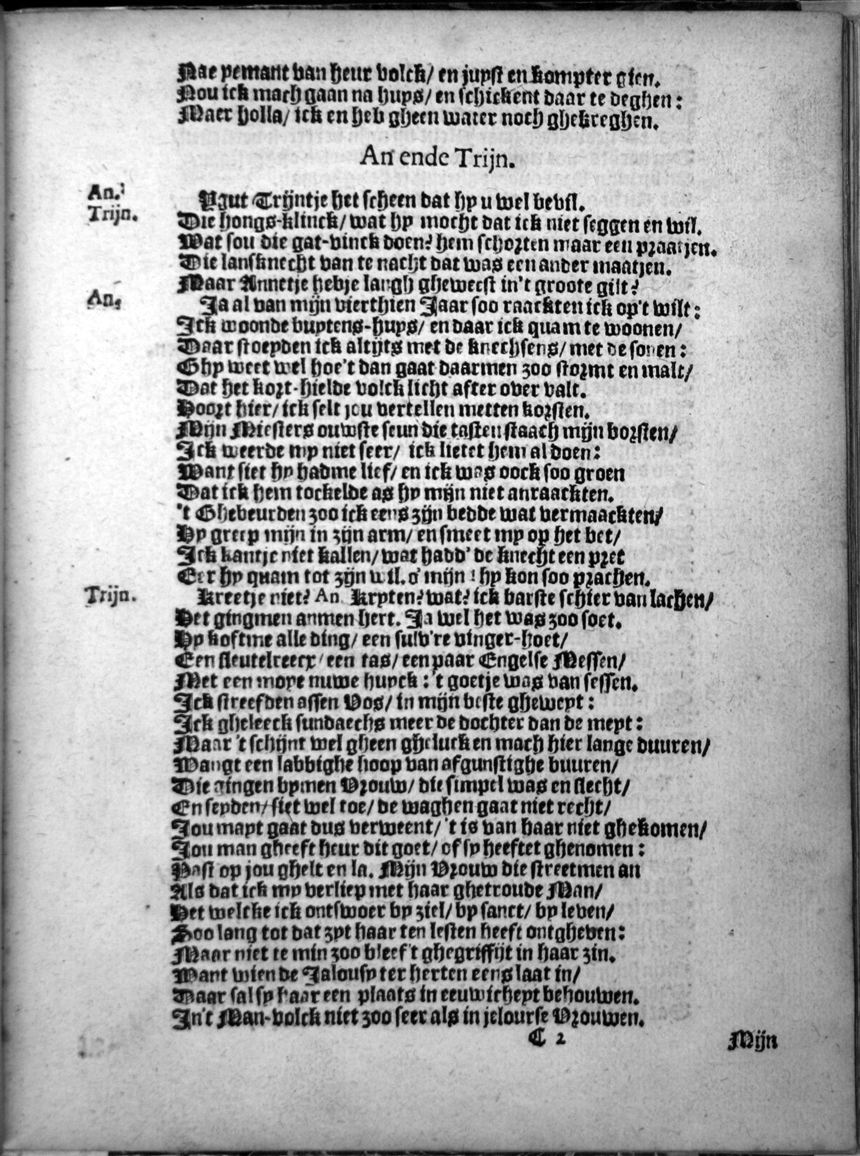 Nae yemant van heur volck/ en juyst en kompter gien.
Nou ick mach gaan na huys/ en schickent daar te deghen:
Maer holla/ ick en heb gheen water noch ghekreghen.
An ende Trijn.
An. Ygut Trijntje het scheen dat hy u wel bevil.
Trijn. Die hongs-klinck/ wat hy mocht dat ick niet seggen en wil.
Wat sou die gat-vinck doen? hem schorten maar een praatjen.
Die lansknecht van te nacht dat was een ander maatjen.
Maar Annetje hebje langh gheweest in't groote gilt?
An. Ja al van mijn vierthien Jaar soo raackten ick op't wilt:
Ick woonde buytens-huys/ en daar ick quam te woonen/
Daar stoeyden ick altijts met de knechsens/ met de sonen:
Ghy weet wel hoe't dan gaat daarmen zoo stormt en malt/
Dat het kort-hielde volck licht after over valt.
Hoort hier/ ick selt jou vertellen metten korsten.
Mijn Miesters ouwste seun die tasten staach mijn borsten/
Ick weerde my niet seer/ ick lietet hem al doen:
Want siet hy hadme lief/ en ick was oock soo groen
Dat ick hem tockelde as hy mijn niet anraackten.
't Ghebeurden zoo ick eens zijn bedde wat vermaackten/
Hy greep mijn in zijn arm/ en smeet my op het bet/
Ick kantje niet kallen/ wat hadd' de knecht een pret
Eer hy quam tot zijn wil. o mijn! hy kon soo prachen.
Trijn. Kreetje niet? An Kryten? wat? ick barste schier van lachen/
Het gingmen anmen hert. Ja wel het was zoo soet.
Hy koftme alle ding/ een sulv're vinger-hoet/
Een sleutelreecx/ een tas/ een paar Engelse Messen/
Met een moye nuwe huyck: 't goetje was van sessen.
Ick streefden assen Vos/ in mijn beste gheweyt:
Ick gheleeck sundaechs meer de dochter dan de meyt:
Maar 't schijnt wel gheen gheluck en mach hier lange duuren/
Wangt een labbighe hoop van afgunstighe buuren/
Die gingen bymen Vrouw/ die simpel was en slecht/
En seyden/ siet wel toe/ de waghen gaat niet recht/
Jou mayt gaat dus verweent/ 't is van haar niet ghekomen/
Jou man gheeft heur dit goet/ of sy heeftet ghenomen:
Past op jou ghelt en la. Mijn Vrouw die streetmen an
Als dat ick my verliep met haar ghetroude Man/
Het welcke ick ontswoer by ziel/ by sanct/ by leven/
Soo lang tot dat zyt haar ten lesten heeft ontgheven:
Maar niet te min zoo bleef't ghegriffijt in haar zin.
Want wien de Jalousy ter herten eens laat in/
Daar sal sy haar een plaats in eeuwicheyt behouwen.
In't Man-volck niet zoo seer als in jelourse Vrouwen.
C 2 Mijn